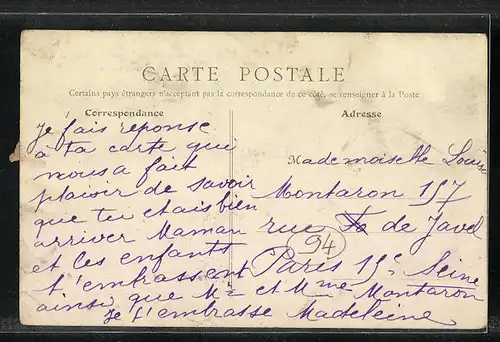 CARTE POSTALE
Certains pays étrangers n'acceptent pas la correspondance de ce côté, se renseigner à la Poste
Correspondance
Je fais reponse
a ta carte qui
nous a fait
plaisir de savoir
que tu etais bien
arriver Maman
et les enfants
t'embrassent
ainsi que Mr et Mme Montaron
Je t'embrasse Madeleine
Adresse
Mademoiselle Louise
Montaron 157
rue de Javel
Paris 15e Seine
94